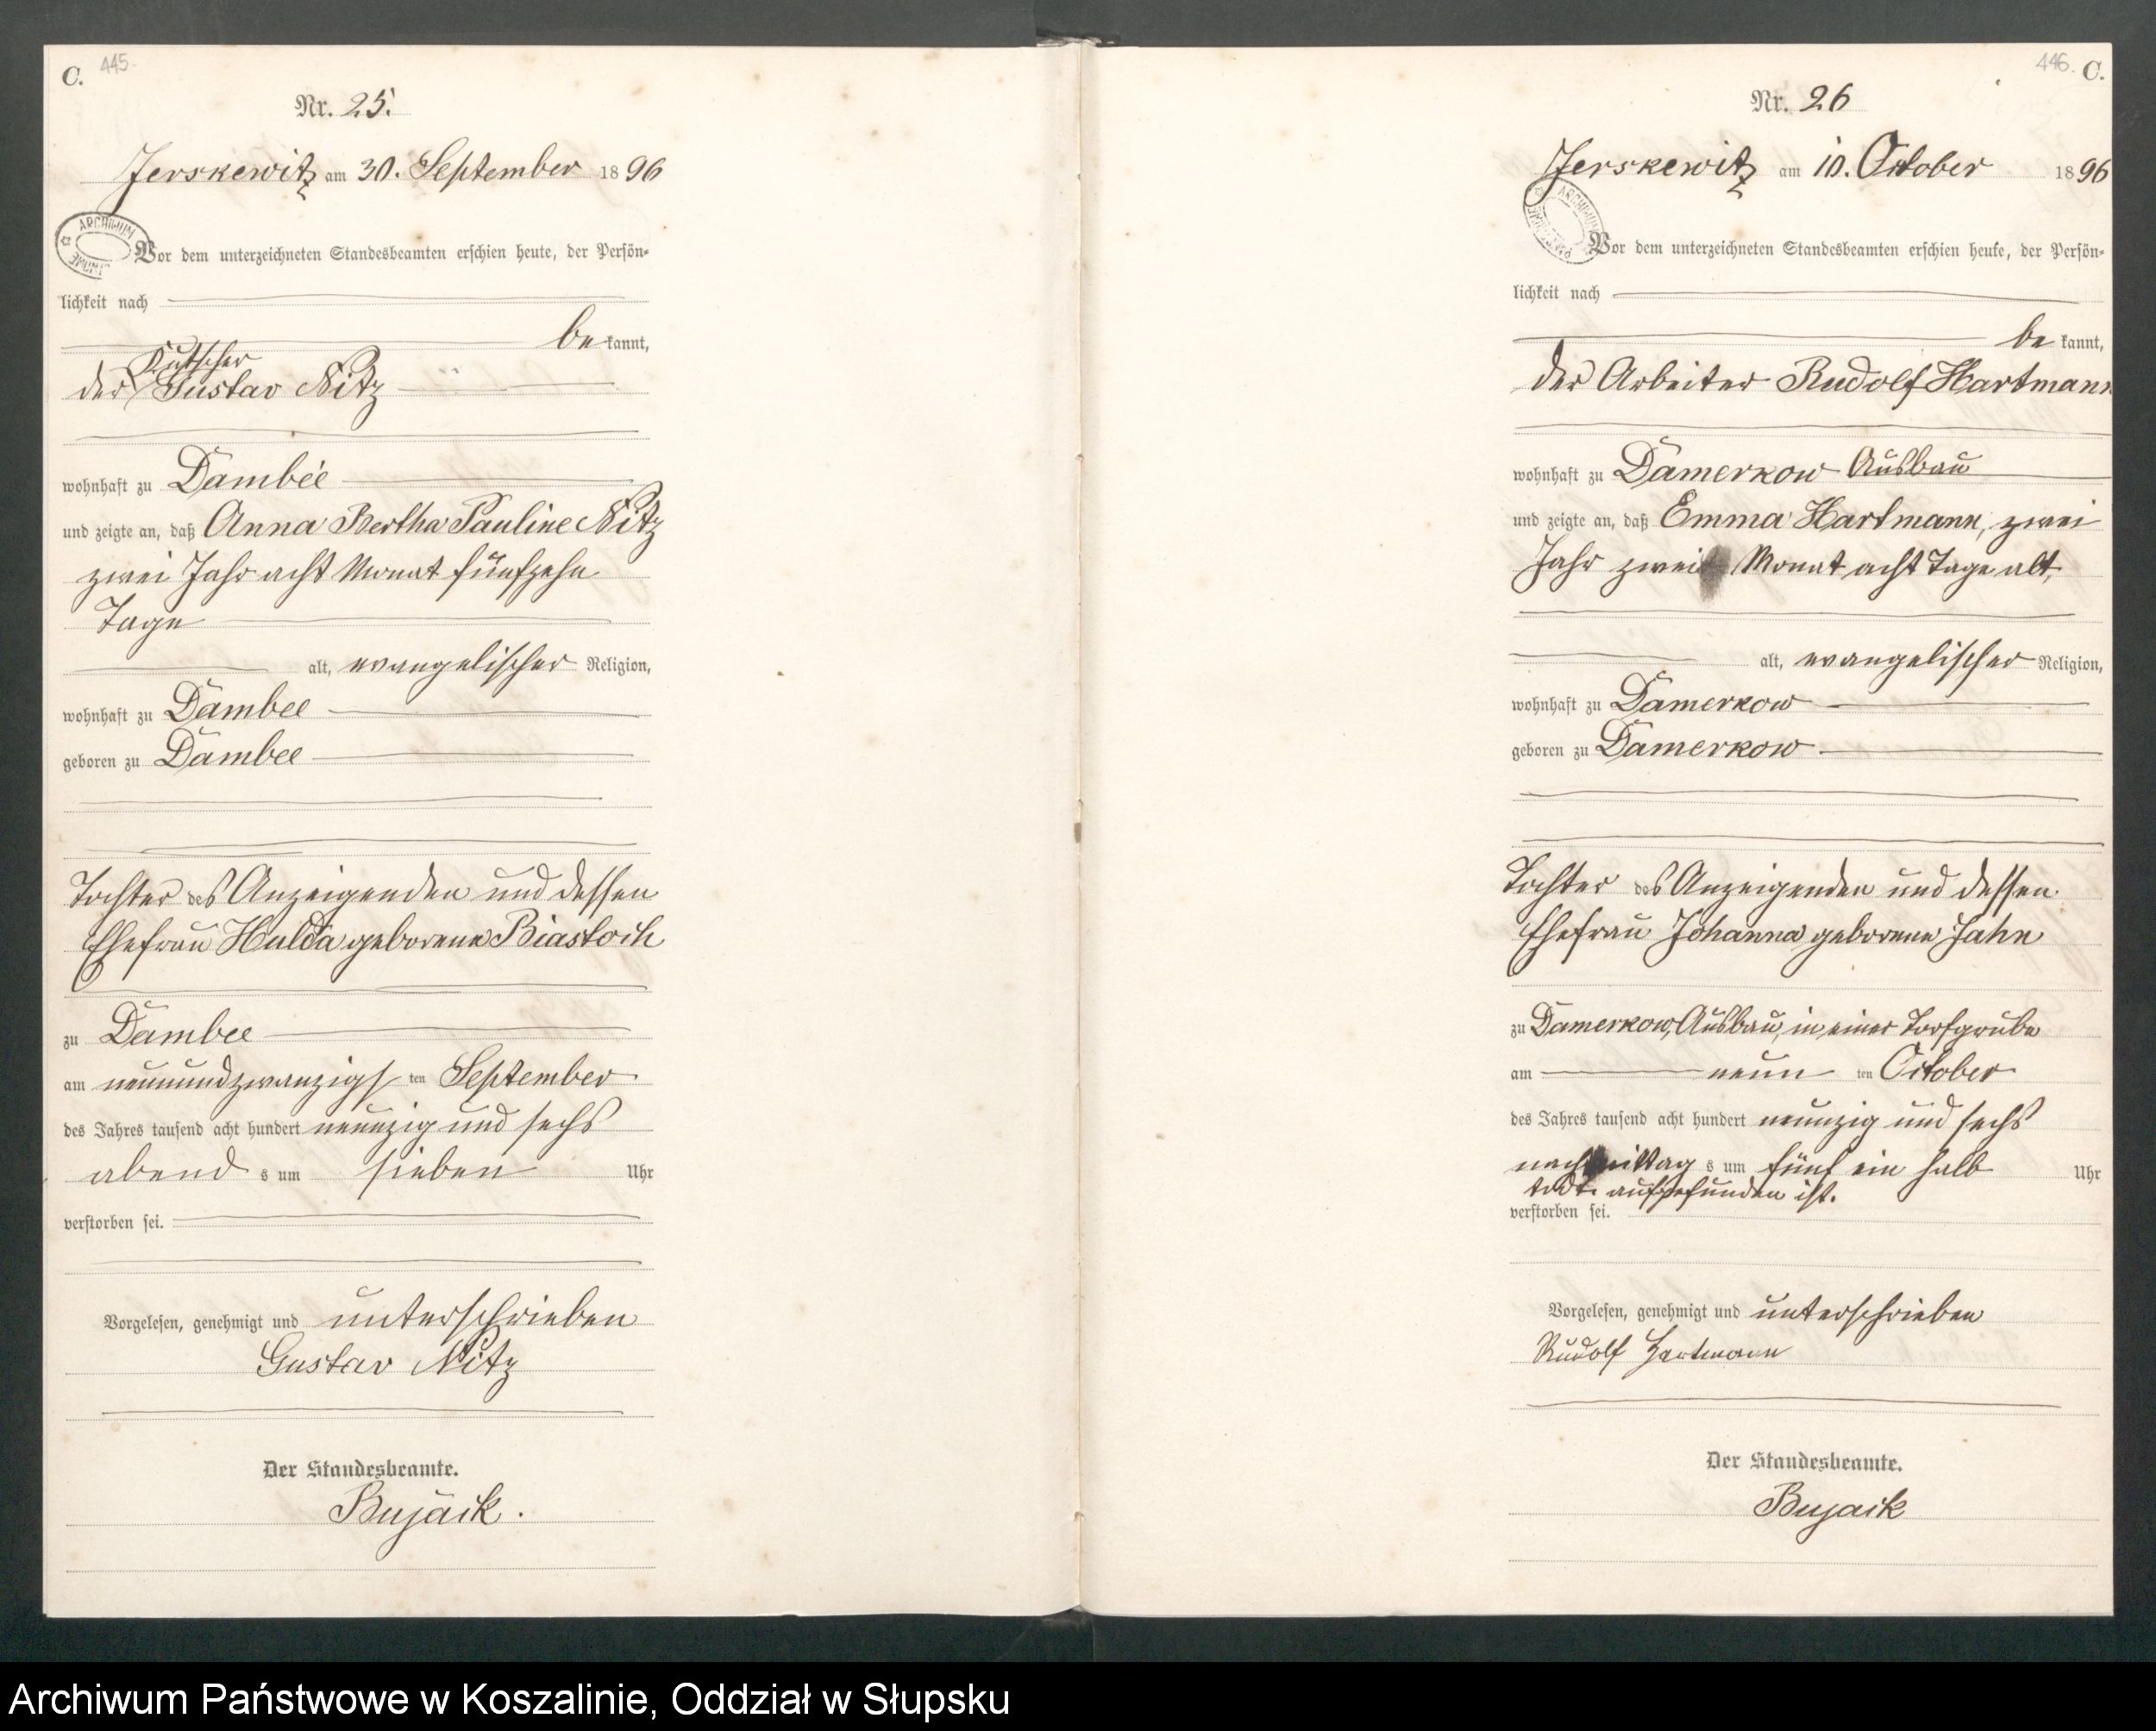 C. 445.
Nr. 25.
Jerskewitz am 30. September 1896
ARCHIWUM
Vor dem unterzeichneten Standesbeamten erschien heute, der Persön-
lichkeit nach
bekannt,
Kutscher
der Gustav Nitz
wohnhaft zu Dambee
und zeigte an, daß Anna Bertha Pauline Nitz
zwei Jahr acht Monat fünfzehn
Tage
alt, evangelischer Religion,
wohnhaft zu Dambee
geboren zu Dambee
Tochter des Anzeigenden und dessen
Ehefrau Hulda geborene Biastoch
zu Dambee
am neunundzwanzigsten September
des Jahres tausend acht hundert neunzig und sechs
abends um sieben Uhr
verstorben sei.
Vorgelesen, genehmigt und unterschrieben
Gustav Nitz
Der Standesbeamte.
Bujack.
446. C.
Nr. 26
Jerskewitz am 10. October 1896
ARCHIWUM
Vor dem unterzeichneten Standesbeamten erschien heute, der Persön-
lichkeit nach
bekannt,
der Arbeiter Rudolf Hartmann
wohnhaft zu Damerkow Ausbau
und zeigte an, daß Emma Hartmann, zwei
Jahr zwei Monat acht Tage alt,
alt, evangelischer Religion,
wohnhaft zu Damerkow
geboren zu Damerkow
Tochter des Anzeigenden und dessen
Ehefrau Johanna geborene Jahn
zu Damerkow, Ausbau, in einer Torfgrube
am neunten October
des Jahres tausend acht hundert neunzig und sechs
nachmittags um fünf ein halb Uhr
todt aufgefunden ist.
verstorben sei.
Vorgelesen, genehmigt und unterschrieben
Rudolf Hartmann
Der Standesbeamte.
Bujack
Archiwum Państwowe w Koszalinie, Oddział w Słupsku